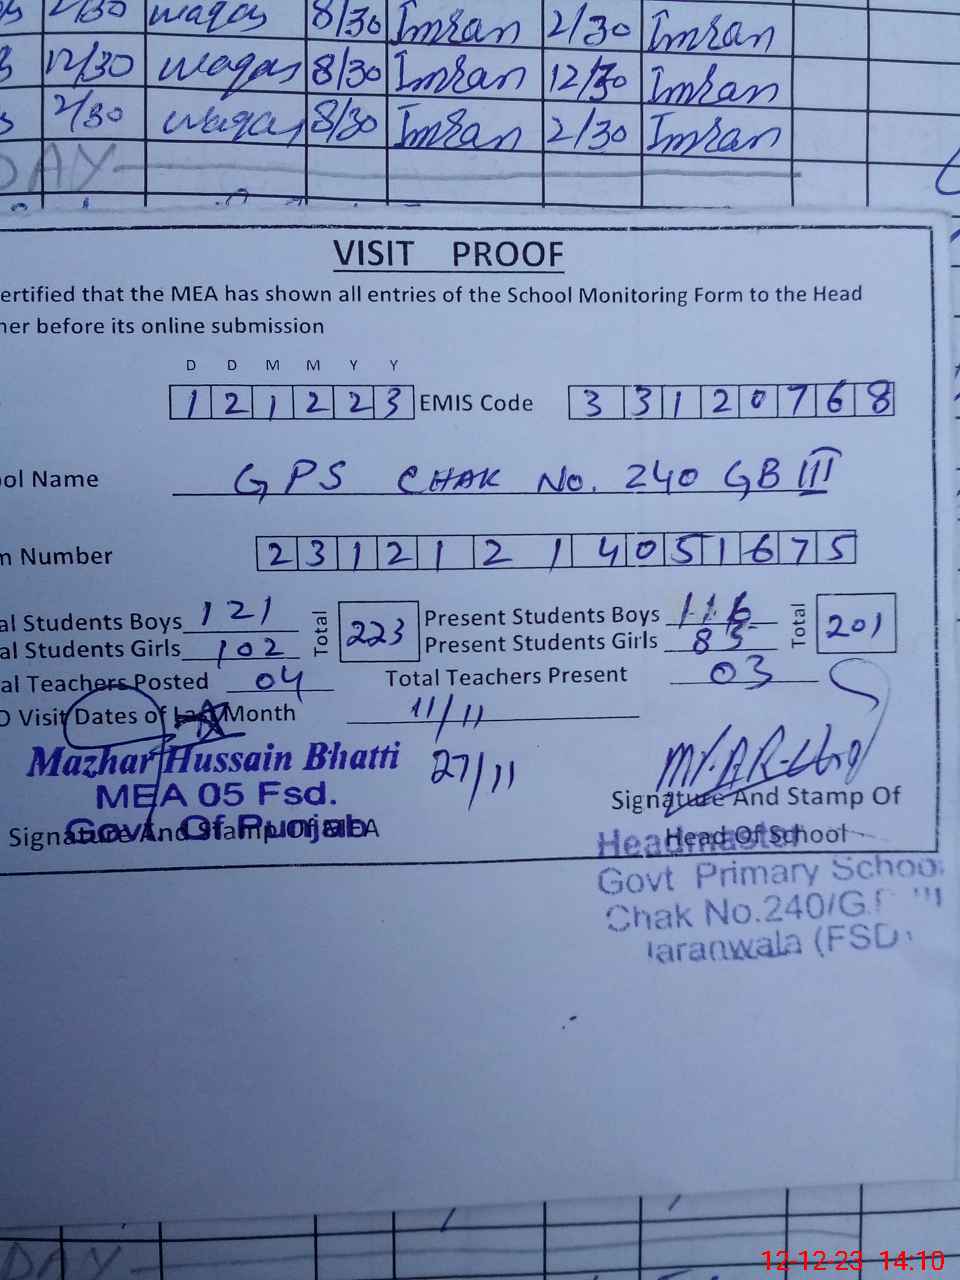 2/30 waqas 8/30 Imran 2/30 Imran
12/30 waqas 8/30 Imran 12/30 Imran
2/30 waqas 8/30 Imran 2/30 Imran
DAY
VISIT PROOF
ertified that the MEA has shown all entries of the School Monitoring Form to the Head
her before its online submission
D D M M Y Y
1 2 1 2 2 3 EMIS Code 3 3 1 2 0 7 6 8
ool Name GPS CHAK No. 240 GB III
m Number 2 3 1 2 1 2 1 4 0 5 1 6 7 5
al Students Boys 121 Total 223 Present Students Boys 116 Total 201
al Students Girls 102 Present Students Girls 85
al Teachers Posted 04 Total Teachers Present 03
O Visit Dates of Last Month 11/11
27/11
Mazhar Hussain Bhatti
MEA 05 Fsd.
Govt Of Punjab
Signature And Stamp Of MEA
Signature And Stamp Of
Head Of School
Headmaster
Govt Primary School
Chak No.240/G.
aranwala (FSD)
DAY
12-12-23 14:10